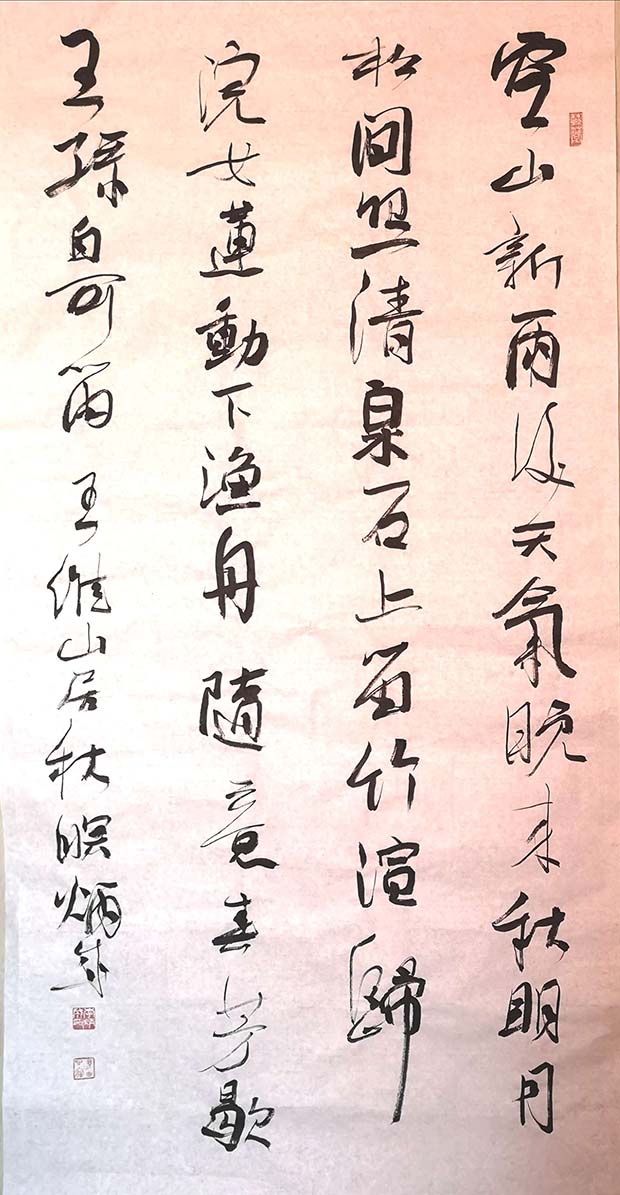 空山新雨後天氣晚来秋明月
松間照清泉石上留竹渲歸
浣女蓮動下漁舟隨意春芳歇
王孫自可留 王維山居秋暝炳